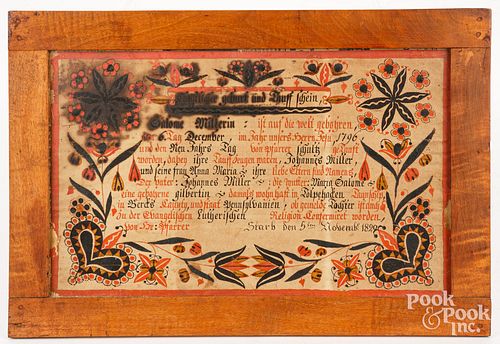 geburt und Tauff schein,
Salome Millerin : ist auf die welt gebohren,
6. Tag December, im Jahr unsers Herrn Jesu 1796
und den Neu Jahrs Tag von Pfarrer schultz
worden, dabey ihre Tauf Zeugen waren, Johannes Miller,
und seine frau Anna Maria ihre liebe Eltern sind Namens
Der Vater: Johannes Miller die Mutter: Maria Salome
eine gebohrne gilbertin damals wohnhaft in
in Bercks County, und staat Pennsylvanien,
Zu der Evangelischen Lutherischen Religion Confirmiret worden
von Hr: Pfarrer Starb den 5ten Novemb: 1829
POOK
& POOK
Inc.